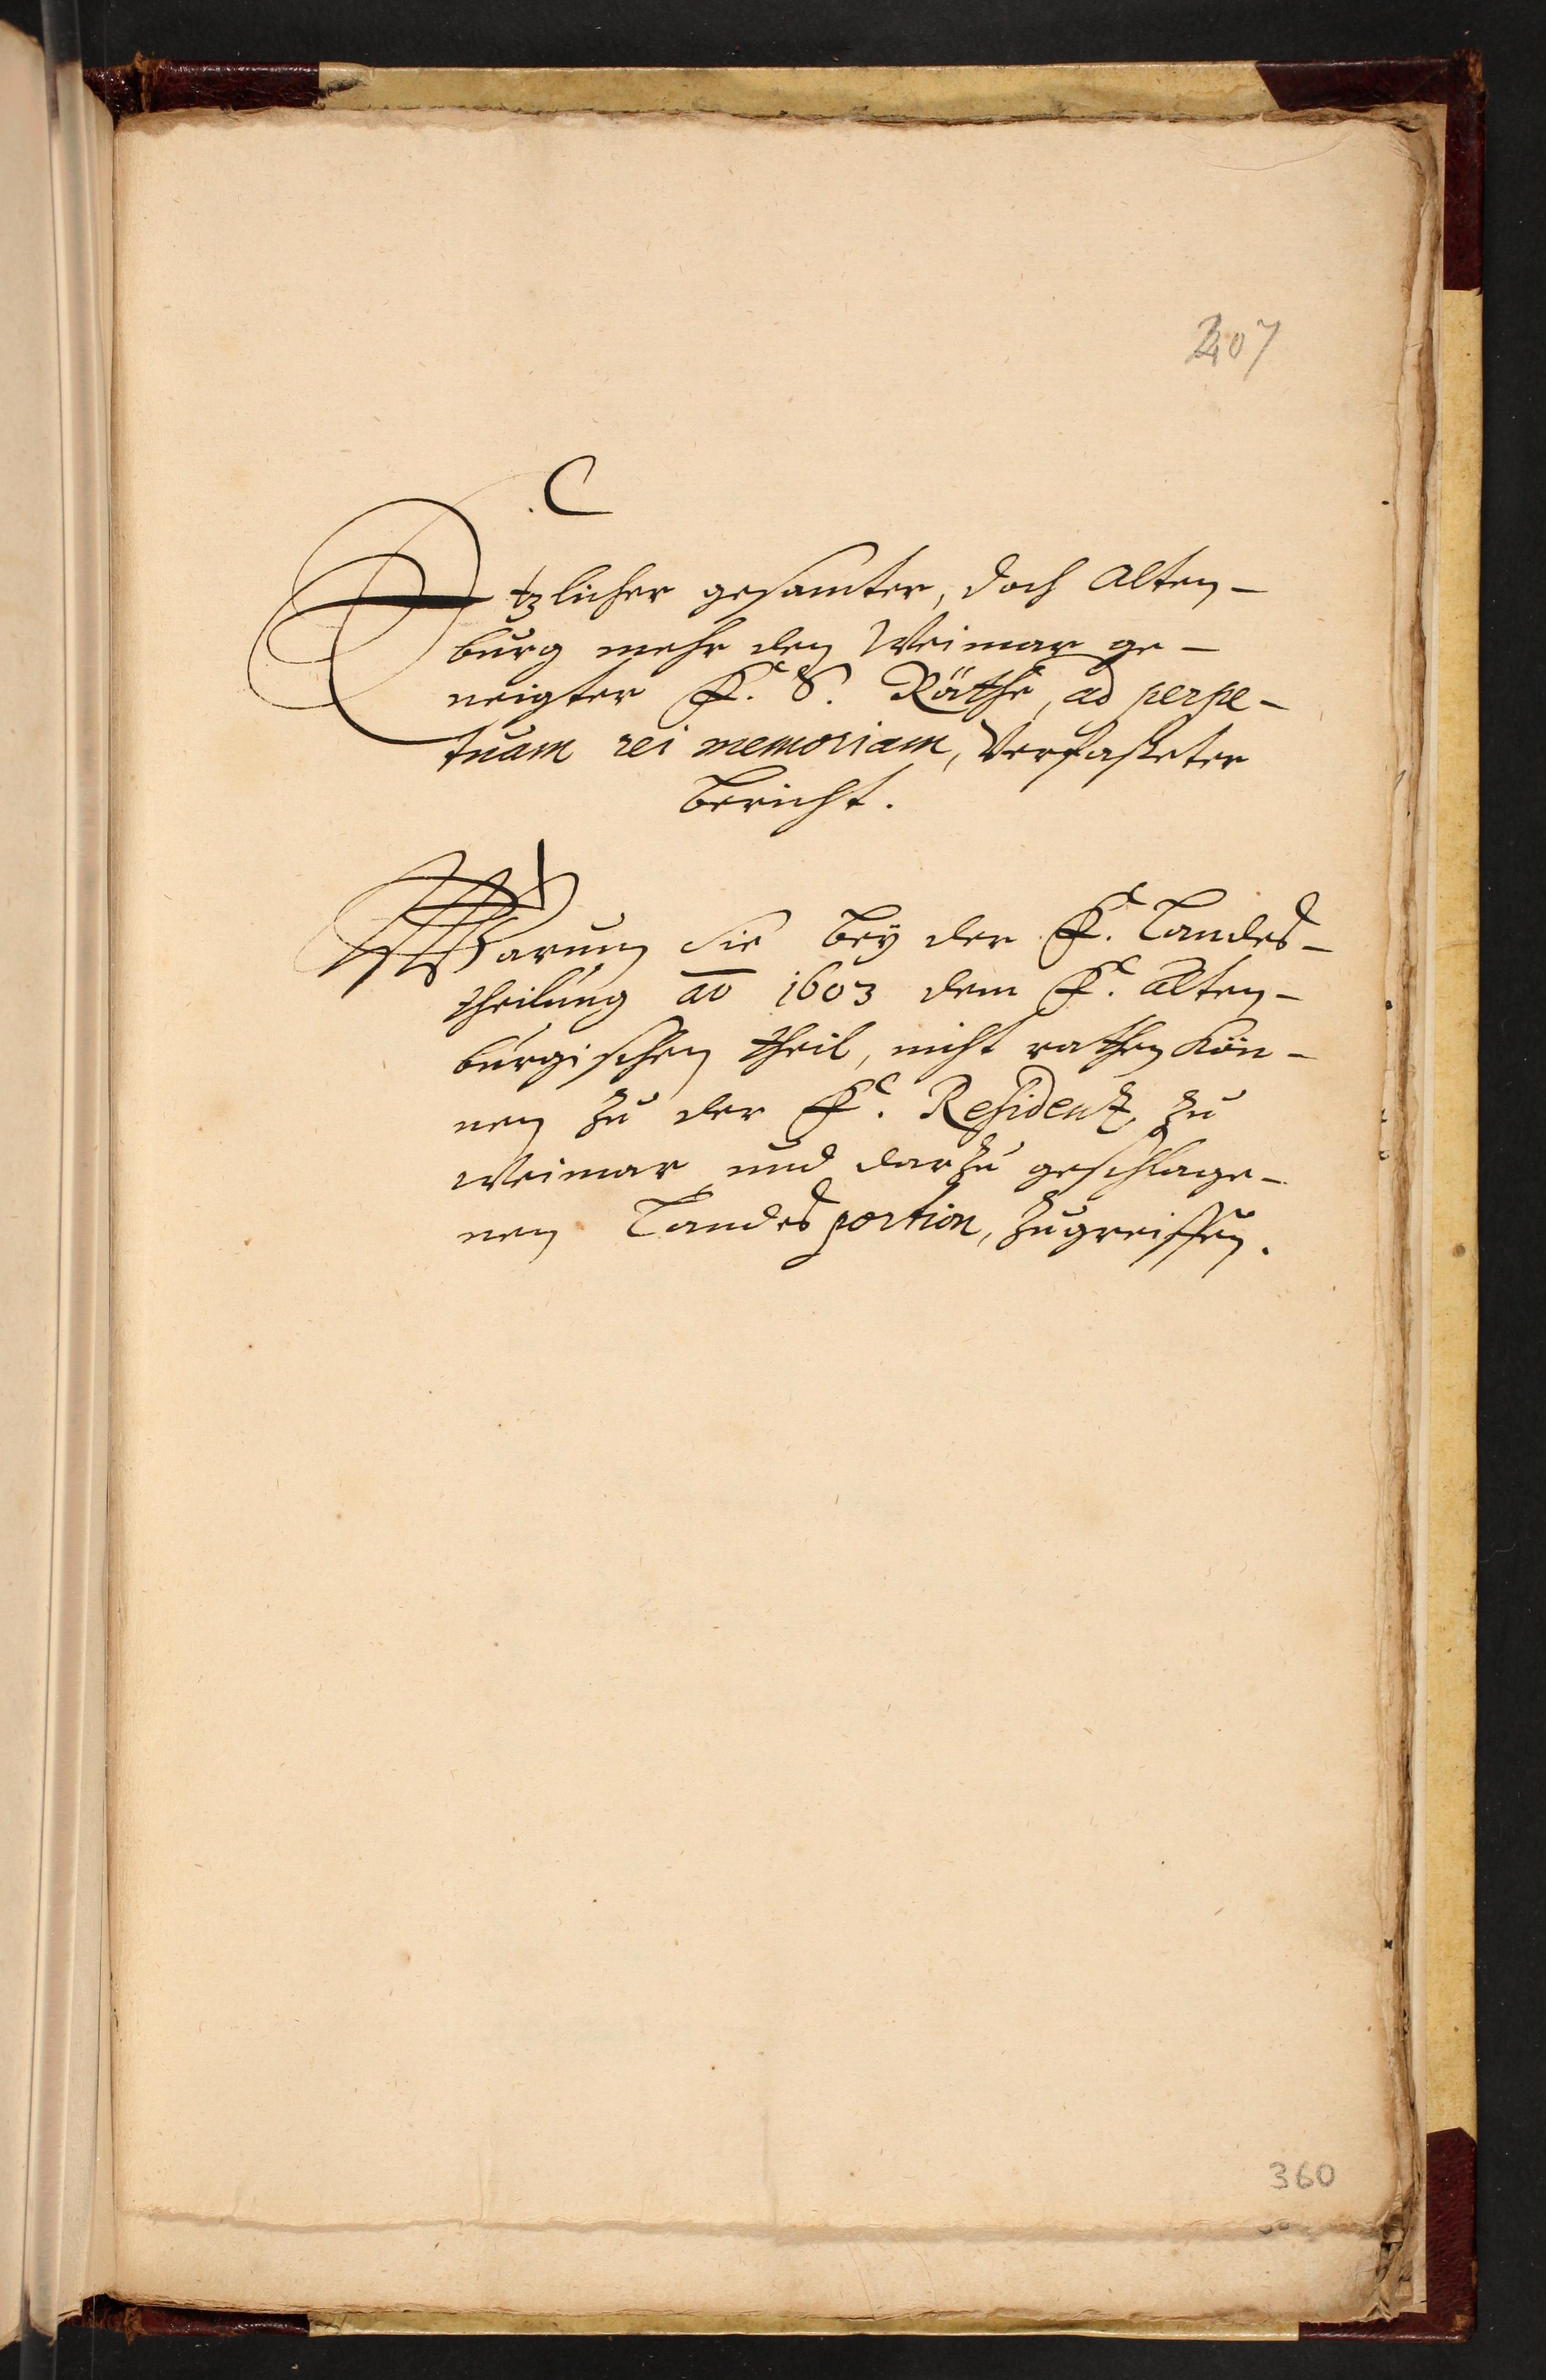 307
.C
Etzlicher gesamter, doch Alten-
burg mehr den Weimar ge-
neigter F. S. Räthe, ad perpe-
tuam rei memoriam, Verfaßeter
Bericht.
Warumb Sie bey der F. Landes-
theilung ao 1603 dem F. Alten-
burgischen theil, nicht rathen kön-
nen zu der F. Residentz zu
Weimar und darzu geschlage-
nen Landes portion, zugreiffen.
360